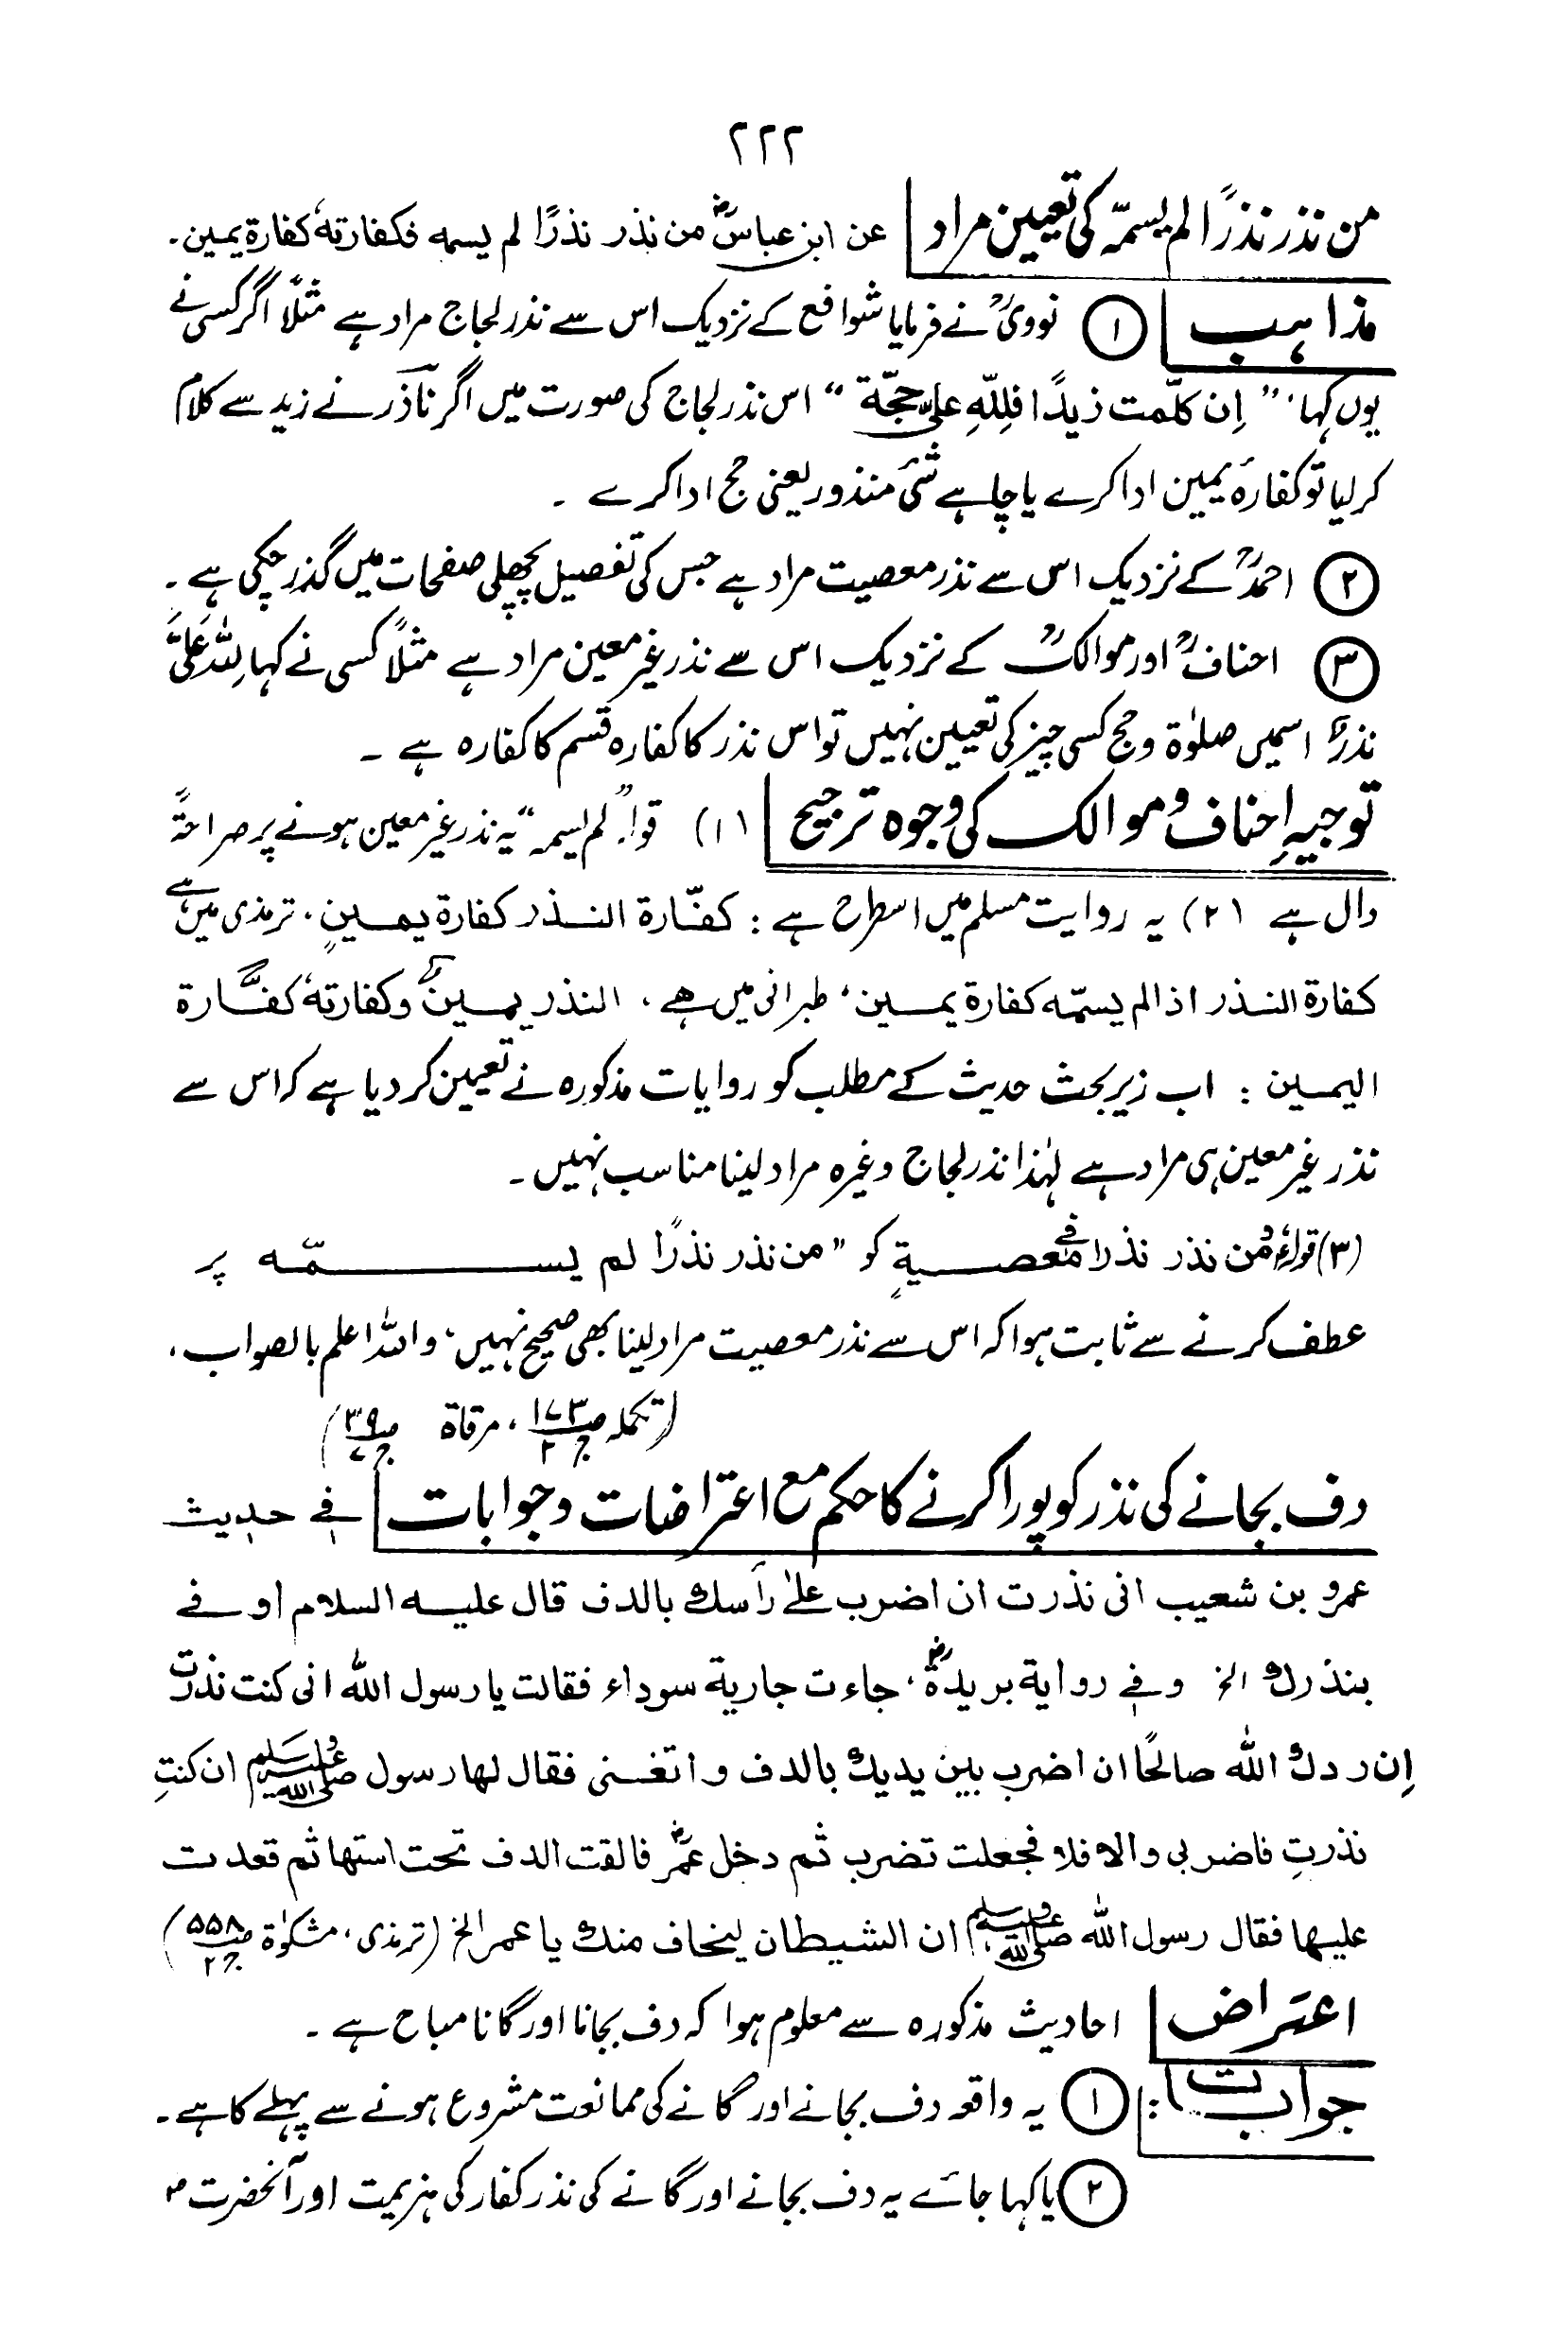 ۲۲۲
من نذر نذرًا لم یسمّہ کی تعیین مراد عن ابن عباسؓ من نذر نذرًا لم یسمه فکفارتهٗ کفارة یمین۔
مذاہب ① نوویؒ نے فرمایا شوافع کے نزدیک اس سے نذر لجاج مراد ہے مثلًا اگر کسی نے
یوں کہا، " اِن کلّمت زیدًا فلِلّٰهِ علیّ حجّة " اس نذر لجاج کی صورت میں اگر ناذر نے زید سے کلام
کرلیا تو کفارہ یمین ادا کرے یا چاہے شئ منذور یعنی حج ادا کرے ۔
② احمدؒ کے نزدیک اس سے نذر معصیت مراد ہے جس کی تفصیل پچھلی صفحات میں گذر چکی ہے ۔
③ احنافؒ اور موالکؒ کے نزدیک اس سے نذر غیر معین مراد ہے مثلًا کسی نے کہا لِلّٰہ عَلَیَّ
نذرٌ اسمیں صلوٰۃ و حج کسی چیز کی تعیین نہیں تو اس نذر کا کفارہ قسم کا کفارہ ہے ۔
توجیہِ احناف و موالک کی وجوہ ترجیح (۱) قولہ "لم یسمہ" یہ نذر غیر معین ہونے پر صراحۃً
دال ہے (۲) یہ روایت مسلم میں اسطرح ہے : کفّارة النذر کفارة یمینٍ، ترمذی میں ہے
کفارة النذر اذا لم یسمّه کفارة یمین، طبرانی میں ہے، النذر یمینٌ وکفارتهٗ کفّارة
الیمین : اب زیر بحث حدیث کے مطلب کو روایات مذکورہ نے تعیین کر دیا ہے کہ اس سے
نذر غیر معین ہی مراد ہے لہٰذا نذر لجاج وغیرہ مراد لینا مناسب نہیں ۔
(۳) قولہٗ ومن نذر نذرا فی معصیةٍ کو " من نذر نذرًا لم یسمّه پر
عطف کرنے سے ثابت ہوا کہ اس سے نذر معصیت مراد لینا بھی صحیح نہیں، واللہ اعلم بالصواب،
(تکملہ ص۱۷۳ ج۲، مرقاة ص۳۹ ج۷)
دف بجانے کی نذر کو پورا کرنے کا حکم مع اعتراضات و جوابات فی حدیث
عمرو بن شعیب انی نذرت ان اضرب علیٰ رأسك بالدف قال علیه السلام اوفی
بنذرك الخ وفی روایة بریدةؓ، جاءت جاریة سوداء فقالت یا رسول اللّٰہ انی کنت نذرت
اِن ردك اللّٰہ صالحًا ان اضرب بین یدیك بالدف واتغنی فقال لها رسول صلی اللہ علیہ وسلم ان کنتِ
نذرتِ فاضربی والا فلا فجعلت تضرب ثم دخل عمرؓ فالقت الدف تحت استها ثم قعدت
علیها فقال رسول اللّٰہ صلی اللہ علیہ وسلم ان الشیطان لیخاف منك یا عمر الخ (ترمذی، مشکوٰة ص۵۵۸ ج۲)
اعتراض احادیث مذکورہ سے معلوم ہوا کہ دف بجانا اور گانا مباح ہے ۔
جوابات : ① یہ واقعہ دف بجانے اور گانے کی ممانعت مشروع ہونے سے پہلے کا ہے ۔
② یا کہا جائے یہ دف بجانے اور گانے کی نذر کفار کی ہزیمت اور آنحضرت ؐ